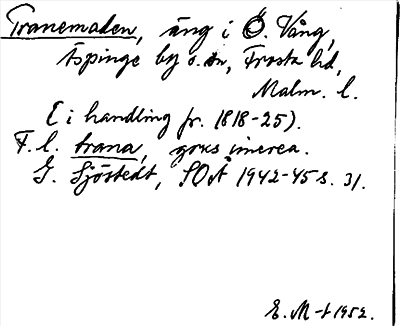 Tranemaden, äng i Ö. Vång,
Äspinge by o. sn, Frosta hd,
Malm. l.
(I handling fr. 1818-25).
F. l. trana, grus cinerea.
G. Sjöstedt, SOÅ 1942-45 s. 31.
E. M-t 1952.